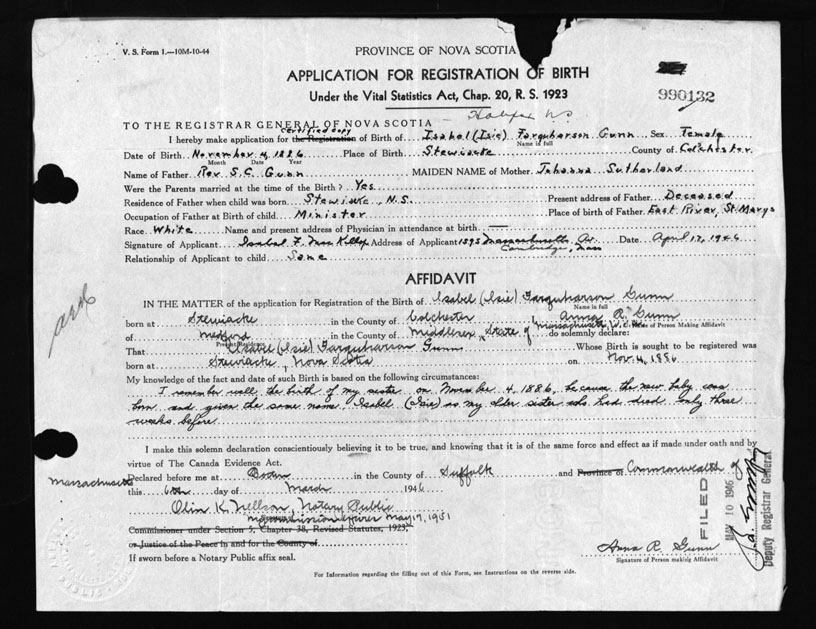 V. S. Form 1.—10M-10-44
PROVINCE OF NOVA SCOTIA
APPLICATION FOR REGISTRATION OF BIRTH
Under the Vital Statistics Act, Chap. 20, R. S. 1923
990132
Halifax N.S.
TO THE REGISTRAR GENERAL OF NOVA SCOTIA
certified copy
I hereby make application for the Registration of Birth of Isabel (Isie) Farquharson Gunn Sex Female
Name in full
Date of Birth November 4, 1886 Place of Birth Stewiacke County of Colchester
Month Date Year
Name of Father Rev. S.C. Gunn MAIDEN NAME of Mother Johanna Sutherland
Were the Parents married at the time of the Birth? Yes
Residence of Father when child was born Stewiacke, N.S. Present address of Father Deceased
Occupation of Father at Birth of child Minister Place of birth of Father East River, St Marys
Race White Name and present address of Physician in attendance at birth —
Signature of Applicant Isabel F. Mac Killop Address of Applicant 1595 Massachusetts Av. Date April 17, 1946
Cambridge, Mass
Relationship of Applicant to child Same
AFFIDAVIT
IN THE MATTER of the application for Registration of the Birth of Isabel (Isie) Farquharson Gunn
Name in full
born at Stewiacke in the County of Colchester Anna R. Gunn
Name of Person Making Affidavit
of Medford in the County of Middlesex, State of Massachusetts, U.S. do solemnly declare:
Present Residence
That Isabel (Isie) Farquharson Gunn Whose Birth is sought to be registered was
born at Stewiacke, Nova Scotia on Nov. 4, 1886
My knowledge of the fact and date of such Birth is based on the following circumstances:
I remember well the birth of my sister on November 4, 1886, because the new baby was
born and given the same name, Isabel (Isie) as my older sister who had died only three
weeks before
I make this solemn declaration conscientiously believing it to be true, and knowing that it is of the same force and effect as if made under oath and by
virtue of The Canada Evidence Act.
Declared before me at Boston in the County of Suffolk and Province of Commonwealth of
Massachusetts
this 6th day of March 1946
Olin K. Nellson, Notary Public
My commission expires May 17, 1951
Commissioner under Section 5, Chapter 38, Revised Statutes, 1923.
or Justice of the Peace in and for the County of
If sworn before a Notary Public affix seal.
Anna R. Gunn
Signature of Person making Affidavit
For Information regarding the filling out of this Form, see Instructions on the reverse side.
FILED
MAY 10 1946
Deputy Registrar General